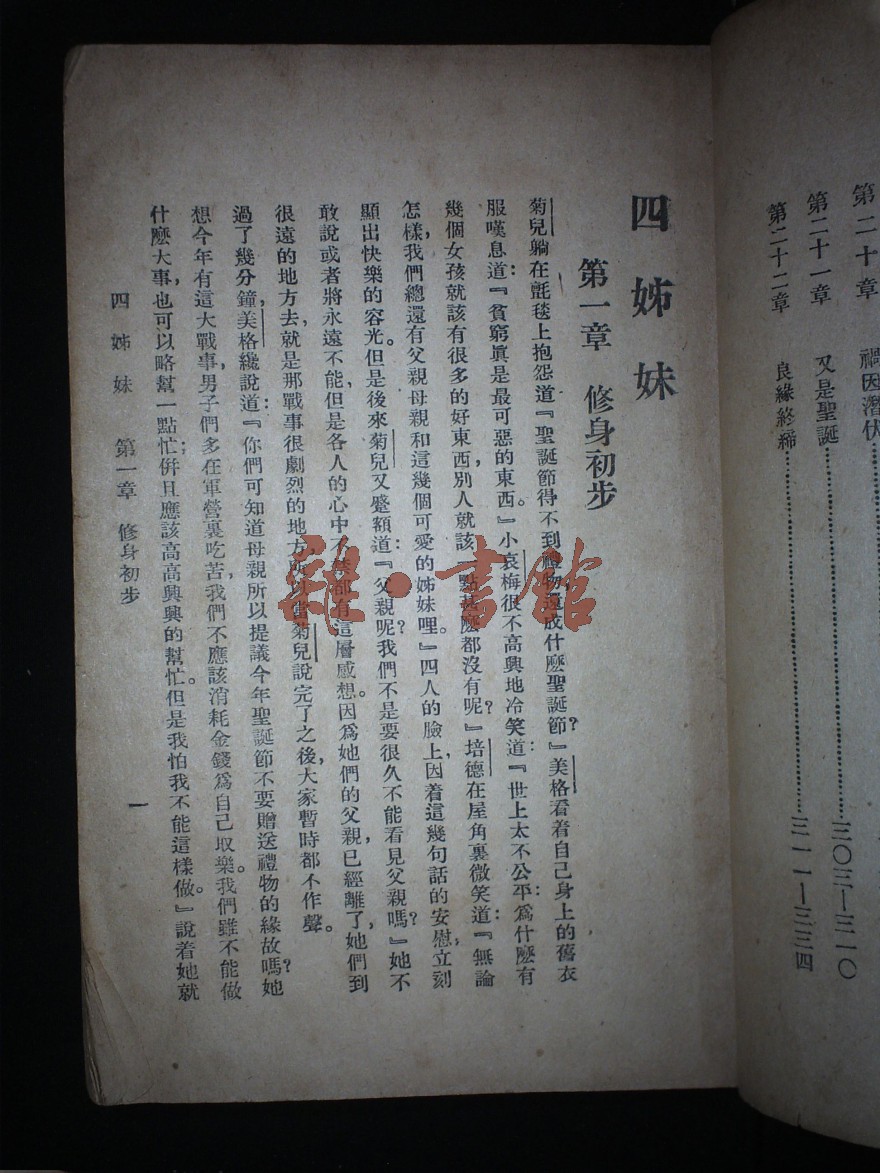 第二十章 禍因潛伏
第二十一章 又是聖誕……三〇三—三一〇
第二十二章 良緣終締……三一一—三三四
四姊妹
第一章 修身初步
菊兒躺在氈毯上抱怨道『聖誕節得不到禮物還成什麼聖誕節?』美格看着自己身上的舊衣
服嘆息道:『貧窮眞是最可惡的東西。』小哀梅很不高興地冷笑道:『世上太不公平:爲什麼有
幾個女孩就該有很多的好東西,別人就該一點甚麼都沒有呢?』培德在屋角裏微笑道:『無論
怎樣,我們總還有父親母親和這幾個可愛的姊妹哩。』四人的臉上因着這幾句話的安慰,立刻
顯出快樂的容光。但是後來菊兒又蹙額道:『父親呢?我們不是要很久不能看見父親嗎?』她不
敢說或者將永遠不能,但是各人的心中不禁都有這層感想。因爲她們的父親,已經離了她們到
很遠的地方去,就是那戰事很劇烈的地方,所以當菊兒說完了之後,大家暫時都不作聲。
過了幾分鐘,美格纔說道:『你們可知道母親所以提議今年聖誕節不要贈送禮物的緣故嗎?她
想今年有這大戰事,男子們多在軍營裏吃苦,我們不應該消耗金錢爲自己取樂。我們雖不能做
什麼大事,也可以略幫一點忙;併且應該高高興興的幫忙。但是我怕我不能這樣做。』說着她就
四姊妹 第一章 修身初步 一
雜·書館